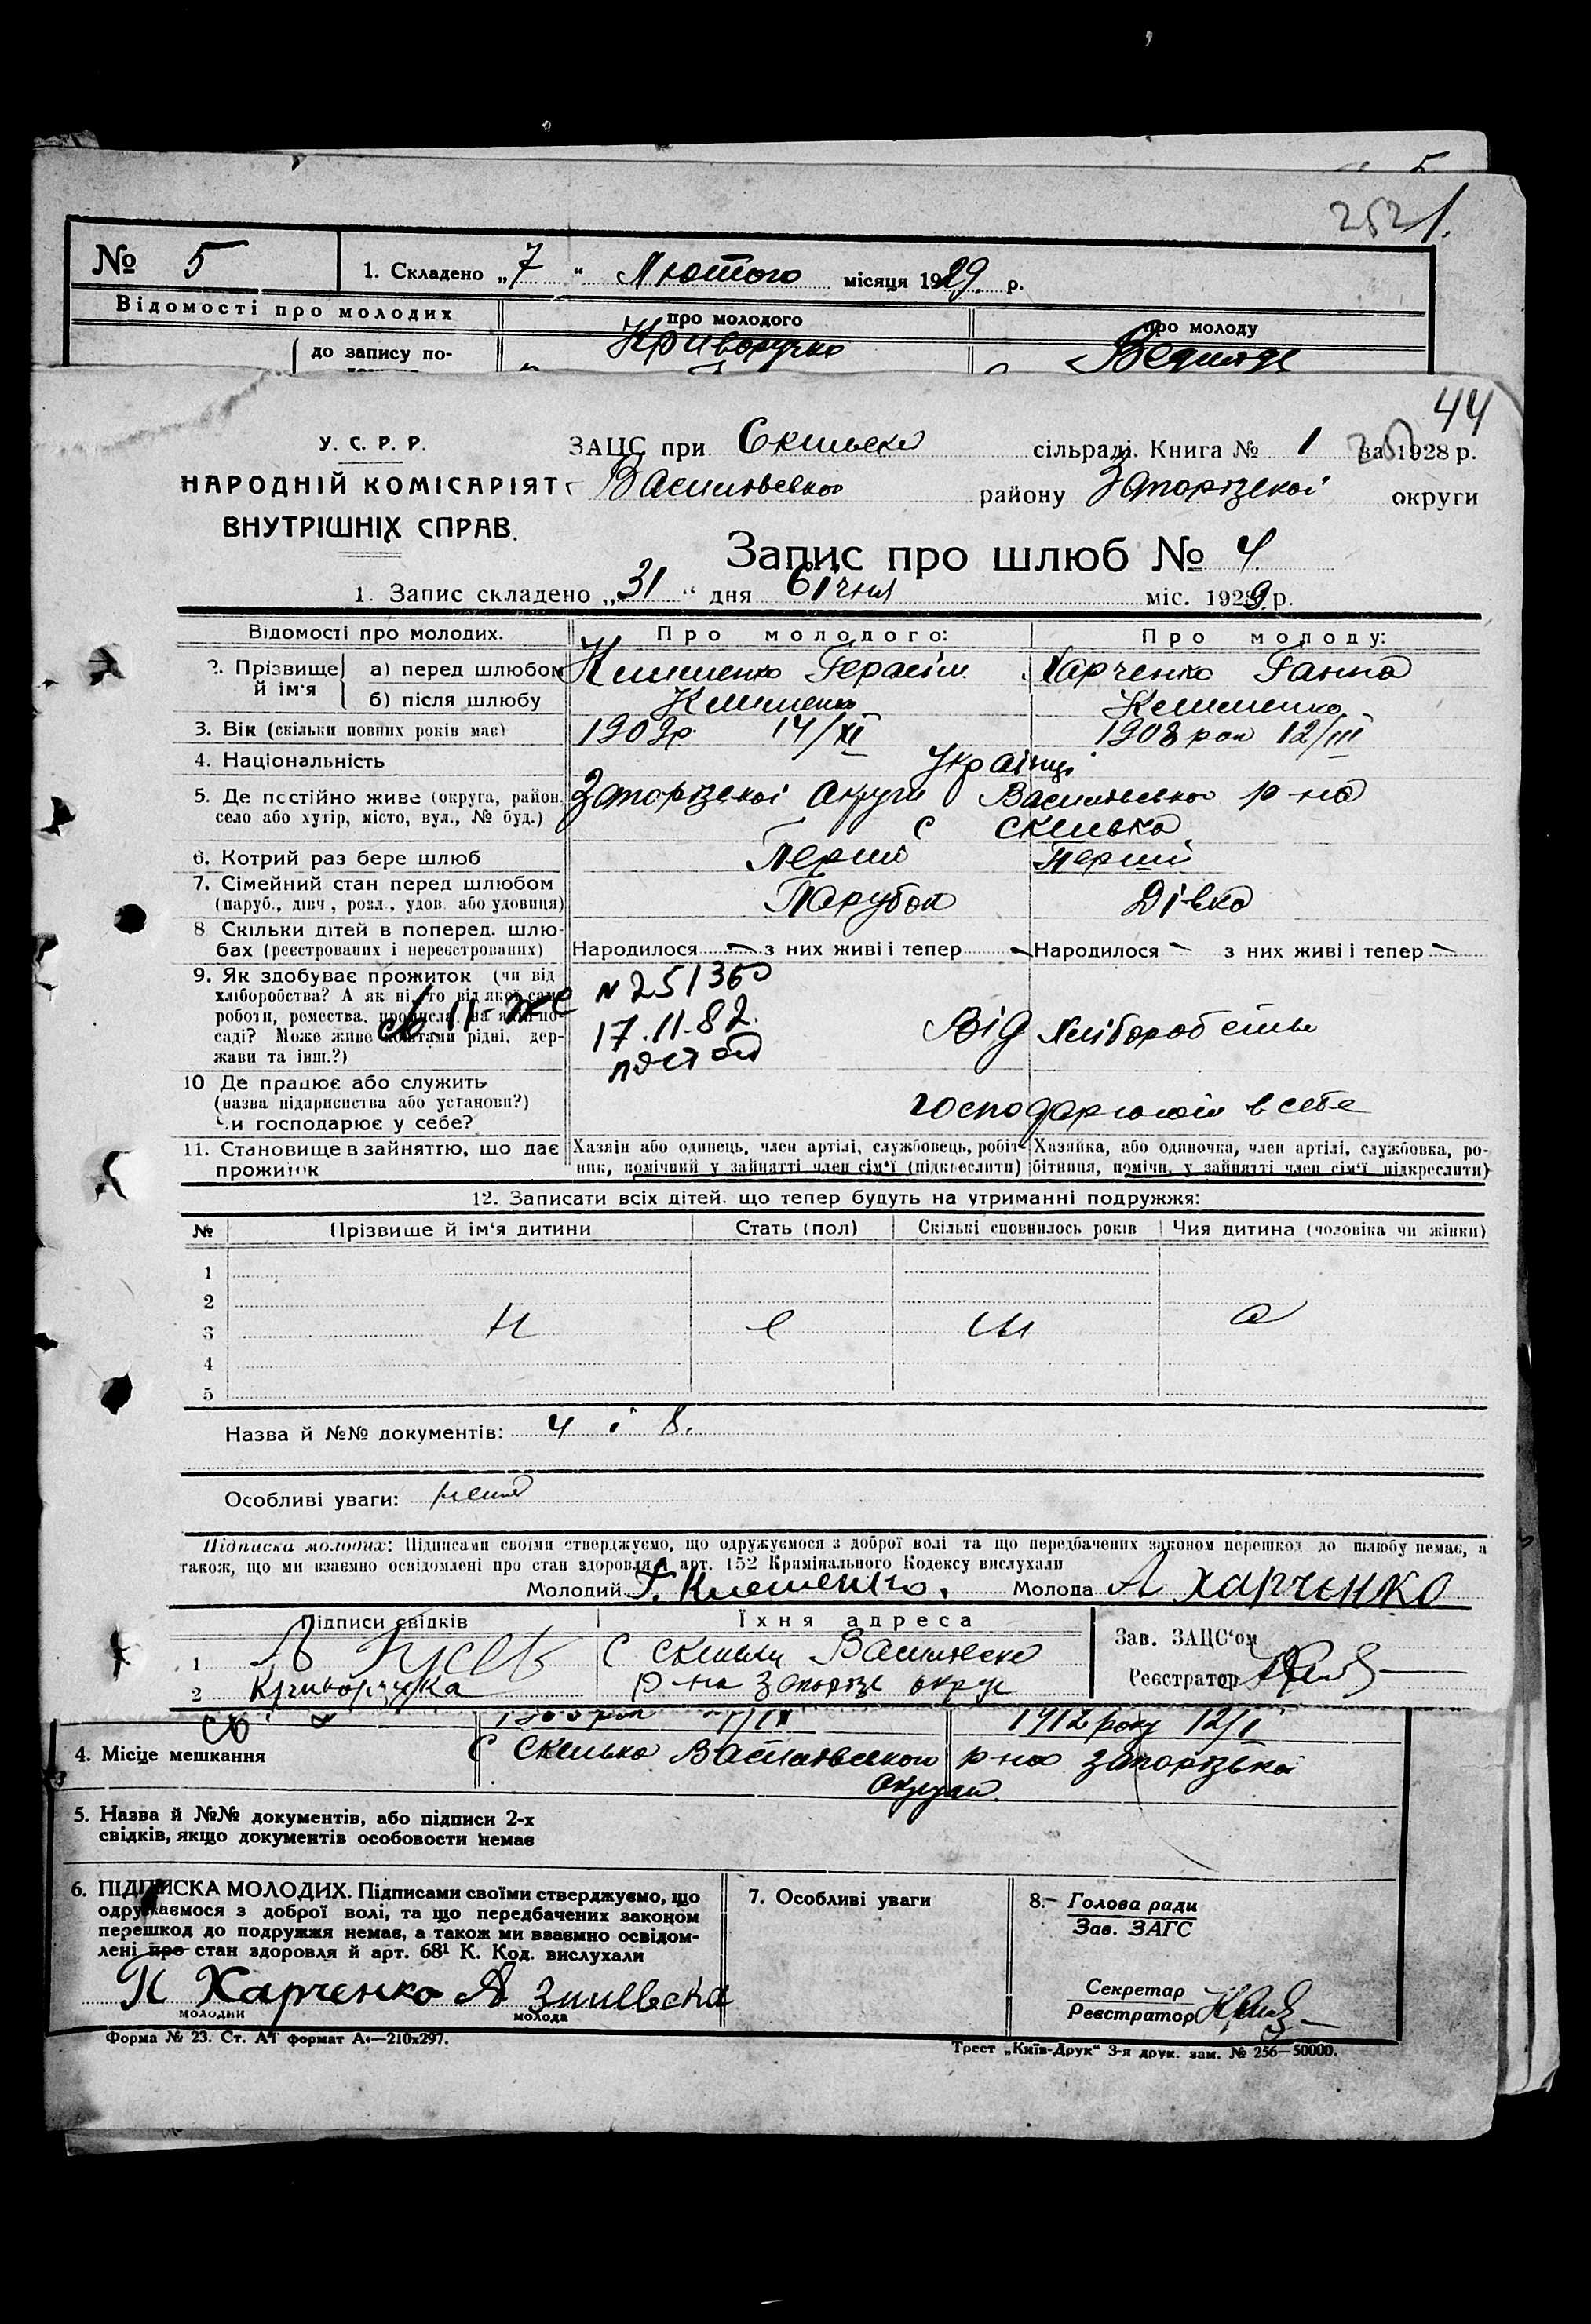 252 1.
№ 5 1. Складено „7“ Лютого місяця 1929 р.
Відомості про молодих про молодого про молоду
до запису по- Криворучко
44
У. С. Р. Р. ЗАЦС при сільраді. Книга № 1 за 1928 р.
НАРОДНІЙ КОМІСАРІЯТ Василівського району Запорізької округи
ВНУТРІШНІХ СПРАВ.
Запис про шлюб № 4
1. Запис складено „31“ дня Січня міс. 1929 р.
Відомості про молодих. Про молодого: Про молоду:
2. Прізвище й ім'я а) перед шлюбом Клименко Герасім Харченко Ганна
б) після шлюбу Клименко Клименко
3. Вік (скільки повних років має) 1909р. 14/XI 1908 рок 12/III
4. Національність Українці
5. Де постійно живе (округа, район, Запорізької Округи Василівського р-на
село або хутір, місто, вул., № буд.) С Скилька
6. Котрий раз бере шлюб Перші Перші
7. Сімейний стан перед шлюбом
(паруб., дівч., розл., удов. або удовиця) Парубок Дівка
8 Скільки дітей в поперед. шлю-
бах (реєстрованих і нереєстрованих) Народилося — з них живі і тепер — Народилося — з них живі і тепер —
9. Як здобуває прожиток (чи від
хліборобства? А як ні, то від якої саме
роботи, ремества, промисла, на якій по-
саді? Може живе коштами рідні, дер-
жави та інш.?)
N 251360
17.11.82.
Від Хліборобства
10 Де працює або служить
(назва підприємства або установи?)
Чи господарює у себе? господарюють в себе
11. Становище в зайняттю, що дає Хазяін або одинець, член артілі, службовець, робіт- Хазяйка, або одиночка, член артілі, службовка, ро-
прожиток ник, помічний у зайнятті член сім'ї (підкреслити) бітниця, помічн. у зайнятті член сім'ї підкреслити)
12. Записати всіх дітей, що тепер будуть на утриманні подружжя:
№ Прізвище й ім'я дитини Стать (пол) Скількі сповнилось років Чия дитина (чоловіка чи жінки)
1
2
3 н е м а
4
5
Назва й №№ документів: 4 і 8.
Особливі уваги: нема
Підписка молодих: Підписами своїми стверджуємо, що одружуємося з доброї волі та що передбачених законом перешкод до шлюбу немає, а
також, що ми взаємно освідомлені про стан здоровля й арт. 152 Кримінального Кодексу вислухали
Молодий Г. Клеменко. Молода А Харченко
Підписи свідків Їхня адреса Зав. ЗАЦС'ом
1 С Скильки Василівськ
2 Криворучка р-на Запорізь округ Реєстратор
1912 року 12/I
4. Місце мешкання С Скилька Василівського р-на Запорізька
округи
5. Назва й №№ документів, або підписи 2-х
свідків, якщо документів особовости немає
6. ПІДПИСКА МОЛОДИХ. Підписами своїми стверджуємо, що
одружаємося з доброї волі, та що передбачених законом
перешкод до подружжя немає, а також ми взаємно освідом-
лені про стан здоровля й арт. 68¹ К. Код. вислухали
7. Особливі уваги
8. Голова ради
Зав. ЗАГС
П Харченко А
молодий молода
Секретар
Реєстратор
Форма № 23. Ст. АТ формат А₄—210х297. Трест „Київ-Друк“ 3-я друк. зам. № 256—50000.